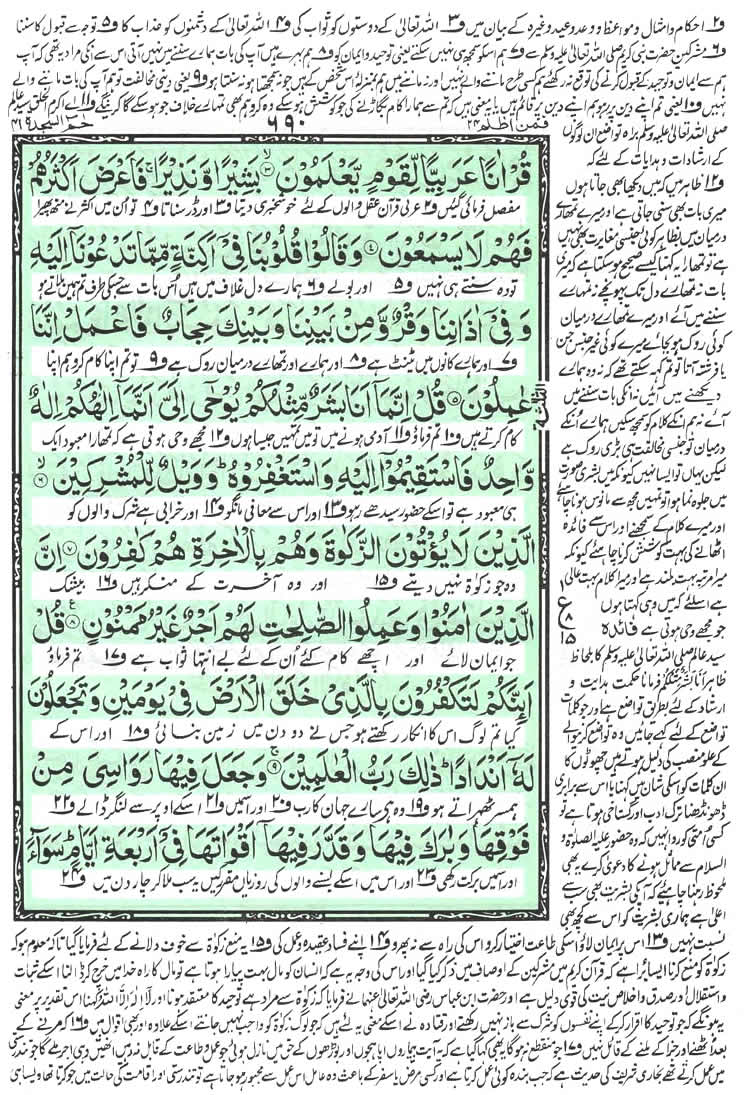 و۲ احکام و امثال و مواعظ و وعد و وعید وغیرہ کے بیان میں و۳ اللہ تعالیٰ کے دوستوں کو ثواب کی و۴ اللہ تعالیٰ کے دشمنوں کو عذاب کا و۵ توجہ سے قبول کا سننا
و۶ مشرکین حضرت نبی کریم صلی اللہ تعالیٰ علیہ وسلم سے و۷ ہم اسکو سمجھ ہی نہیں سکتے یعنی توحید و ایمان کو و۸ ہم بہرے ہیں آپ کی بات ہمارے سننے میں نہیں آتی اس سے انکی مراد یہ تھی کہ آپ
ہم سے ایمان و توحید کے قبول کرنے کی توقع نہ رکھئے ہم کسی طرح ماننے والے نہیں اور نہ ماننے میں ہم بمنزلہ اس شخص کے ہیں جو نہ سمجھتا ہو نہ سنتا ہو و۹ یعنی دینی مخالفت تو ہم آپ کی بات ماننے والے
نہیں و۱۰ یعنی تم اپنے دین پر رہو ہم اپنے دین پر قائم ہیں یا یہ معنی ہیں کہ تم سے ہمارا کام بگاڑنے کی جو کوشش ہو سکے وہ کرو ہم بھی تمہارے خلاف جو ہوسکے گا کریں گے و۱۱ اے اکرم الخلق سید عالم
حم السجدة ۴۱
۶۹۰
فمن اظلم ۲۴
قُرْاٰنًا عَرَبِیًّا لِّقَوْمٍ یَّعْلَمُوْنَ ۙ۳ بَشِیْرًا وَّ نَذِیْرًا ۚ فَاَعْرَضَ اَكْثَرُهُمْ
مفصل فرمائی گئیں و۲ عربی قرآن عقل والوں کے لئے خوشخبری دیتا و۳ اور ڈر سناتا و۴ تو ان میں اکثر نے منھ پھیرا
فَهُمْ لَا یَسْمَعُوْنَ ۴ وَ قَالُوْا قُلُوْبُنَا فِیْۤ اَكِنَّةٍ مِّمَّا تَدْعُوْنَاۤ اِلَیْهِ
تو وہ سنتے ہی نہیں و۵ اور بولے و۶ ہمارے دل غلاف میں ہیں اُس بات سے جس کی طرف تم ہمیں بلاتے ہو
وَ فِیْۤ اٰذَانِنَا وَقْرٌ وَّ مِنْۢ بَیْنِنَا وَ بَیْنِكَ حِجَابٌ فَاعْمَلْ اِنَّنَا
و۷ اور ہمارے کانوں میں ٹینٹ ہے و۸ اور ہمارے اور تمھارے درمیان روک ہے و۹ تو تم اپنا کام کرو ہم اپنا
عٰمِلُوْنَ ۵ قُلْ اِنَّمَاۤ اَنَا بَشَرٌ مِّثْلُكُمْ یُوْحٰۤی اِلَیَّ اَنَّمَاۤ اِلٰهُكُمْ اِلٰهٌ
کام کرتے ہیں و۱۰ تم فرماؤ و۱۱ آدمی ہونے میں تو میں تمہیں جیسا ہوں و۱۲ مجھے وحی ہوتی ہے کہ تمھارا معبود ایک
وَّاحِدٌ فَاسْتَقِیْمُوْۤا اِلَیْهِ وَ اسْتَغْفِرُوْهُ ؕ وَ وَیْلٌ لِّلْمُشْرِكِیْنَ ۙ۶
ہی معبود ہے تو اسکے حضور سیدھے رہو و۱۳ اور اس سے معافی مانگو و۱۴ اور خرابی ہے شرک والوں کو
الَّذِیْنَ لَا یُؤْتُوْنَ الزَّكٰوةَ وَ هُمْ بِالْاٰخِرَةِ هُمْ كٰفِرُوْنَ ۷ اِنَّ
وہ جو زکوٰۃ نہیں دیتے و۱۵ اور وہ آخرت کے منکر ہیں و۱۶ بیشک
الَّذِیْنَ اٰمَنُوْا وَ عَمِلُوا الصّٰلِحٰتِ لَهُمْ اَجْرٌ غَیْرُ مَمْنُوْنٍ ۸ قُلْ
جو ایمان لائے اور اچھے کام کئے اُن کے لئے بے انتہا ثواب ہے و۱۷ تم فرماؤ
اَىٕنَّكُمْ لَتَكْفُرُوْنَ بِالَّذِیْ خَلَقَ الْاَرْضَ فِیْ یَوْمَیْنِ وَ تَجْعَلُوْنَ
کیا تم لوگ اس کا انکار رکھتے ہو جس نے دو دن میں زمین بنائی و۱۸ اور اس کے
لَهٗۤ اَنْدَادًا ؕ ذٰلِكَ رَبُّ الْعٰلَمِیْنَ ۚ۹ وَ جَعَلَ فِیْهَا رَوَاسِیَ مِنْ
ہمسر ٹھہراتے ہو و۱۹ وہ ہی سارے جہان کا رب و۲۰ اور اسمیں و۲۱ اسکے اوپر سے لنگر ڈالے و۲۲
فَوْقِهَا وَ بٰرَكَ فِیْهَا وَ قَدَّرَ فِیْهَاۤ اَقْوَاتَهَا فِیْۤ اَرْبَعَةِ اَیَّامٍ ؕ سَوَآءً
اور اسمیں برکت رکھی و۲۳ اور اس میں اسکے بسنے والوں کی روزیاں مقرر کیں یہ سب ملا کر چار دن میں و۲۴
الثلثة
ع
۸
۱۵
صلی اللہ تعالیٰ علیہ وسلم براہ تواضع ان لوگوں
کے ارشادات و ہدایات کے لئے کہ
و۱۲ ظاہر میں کہ میں دیکھا بھی جاتا ہوں
میری بات بھی سنی جاتی ہے اور میرے تمھارے
درمیان میں بظاہر کوئی جنسی مغایرت بھی نہیں
ہے تو تمھارا یہ کہنا کیسے صحیح ہوسکتا ہے کہ میری
بات نہ تمھارے دل تک پہونچے نہ تمھارے
سننے میں آئے اور میرے تمھارے درمیان
کوئی روک ہو بجائے میرے کوئی غیر جنس جن
یا فرشتہ آتا تو تم کہہ سکتے تھے کہ نہ وہ ہمارے
دیکھنے میں آئیں نہ انکی بات سننے میں
آئے نہ ہم انکے کلام کو سمجھ سکیں ہمارے انکے
درمیان تو جنسی مخالفت ہی بڑی روک ہے
لیکن یہاں تو ایسا نہیں کیونکہ میں بشری صورت
میں جلوہ نما ہوا تو تمہیں مجھ سے مانوس ہونا چاہئے
اور میرے کلام کے سمجھنے اور اس سے فائدہ
اٹھانے کی بہت کوشش کرنا چاہئے کیونکہ
میرا مرتبہ بہت بلند ہے اور میرا کلام بہت عالی
ہے اسلئے کہ میں وہی کہتا ہوں
جو مجھے وحی ہوتی ہے فائدہ
سید عالم صلی اللہ تعالیٰ علیہ وسلم کا بلحاظ
ظاہر انا بشر مثلکم فرمانا حکمت ہدایت و
ارشاد کے لئے بطریق تواضع ہے اور جو کلمات
تواضع کے لئے کہے جائیں وہ تواضع کرنے والے
کے علو منصب کی دلیل ہوتے ہیں چھوٹوں کا
ان کلمات کو اسکی شان میں کہنا یا اس سے برابری
ڈھونڈھنا ترک ادب اور گستاخی ہوتا ہے تو
کسی امتی کو روا نہیں کہ وہ حضور علیہ الصلوٰۃ و
السلام سے مماثل ہونے کا دعویٰ کرے یہ بھی
ملحوظ رہنا چاہئے کہ آپکی بشریت بھی سب سے
اعلیٰ ہے ہماری بشریت کو اس سے کچھ بھی
نسبت نہیں و۱۳ اس پر ایمان لاؤ اسکی طاعت اختیار کرو اس کی راہ سے نہ پھرو و۱۴ اپنے فساد عقیدہ و عمل کی و۱۵ یہ منع زکوٰۃ سے خوف دلانے کے لئے فرمایا گیا تاکہ معلوم ہو کہ
زکوٰۃ کو منع کرنا ایسا برا ہے کہ قرآن کریم میں مشرکین کے اوصاف میں ذکر کیا گیا اور اس کی وجہ یہ ہے کہ انسان کو مال بہت پیارا ہوتا ہے تو مال کا راہ خدا میں خرچ کر ڈالنا اسکے ثبات
و استقلال اور صدق و اخلاص نیت کی قوی دلیل ہے اور حضرت ابن عباس رضی اللہ تعالیٰ عنہما نے فرمایا کہ زکوٰۃ سے مراد ہے توحید کا معتقد ہونا اور لا الٰہ الا اللہ کہنا اس تقدیر پر معنی
یہ ہونگے کہ جو توحید کا اقرار کر کے اپنے نفسوں کو شرک سے باز نہیں رکھتے اور قتادہ نے اسکے معنی یہ لئے ہیں کہ جو لوگ زکوٰۃ کو واجب نہیں جانتے اسکے علاوہ اور بھی اقوال ہیں و۱۶ کہ مرنے کے
بعد اٹھنے اور جزا کے ملنے کے قائل نہیں و۱۷ جو منقطع نہ ہوگا یہ بھی کہا گیا ہے کہ یہ آیت بیماروں اپاہجوں اور بوڑھوں کے حق میں نازل ہوئی جو عمل و طاعت کے قابل نہ رہیں انھیں وہی اجر ملے گا جو تندرستی
میں عمل کرتے تھے بخاری شریف کی حدیث ہے کہ جب بندہ کوئی عمل کرتا ہے اور کسی مرض یا سفر کے باعث وہ عامل اس عمل سے مجبور ہو جاتا ہے تو تندرستی اور اقامت کی حالت میں جو کرتا تھا ویسا ہی